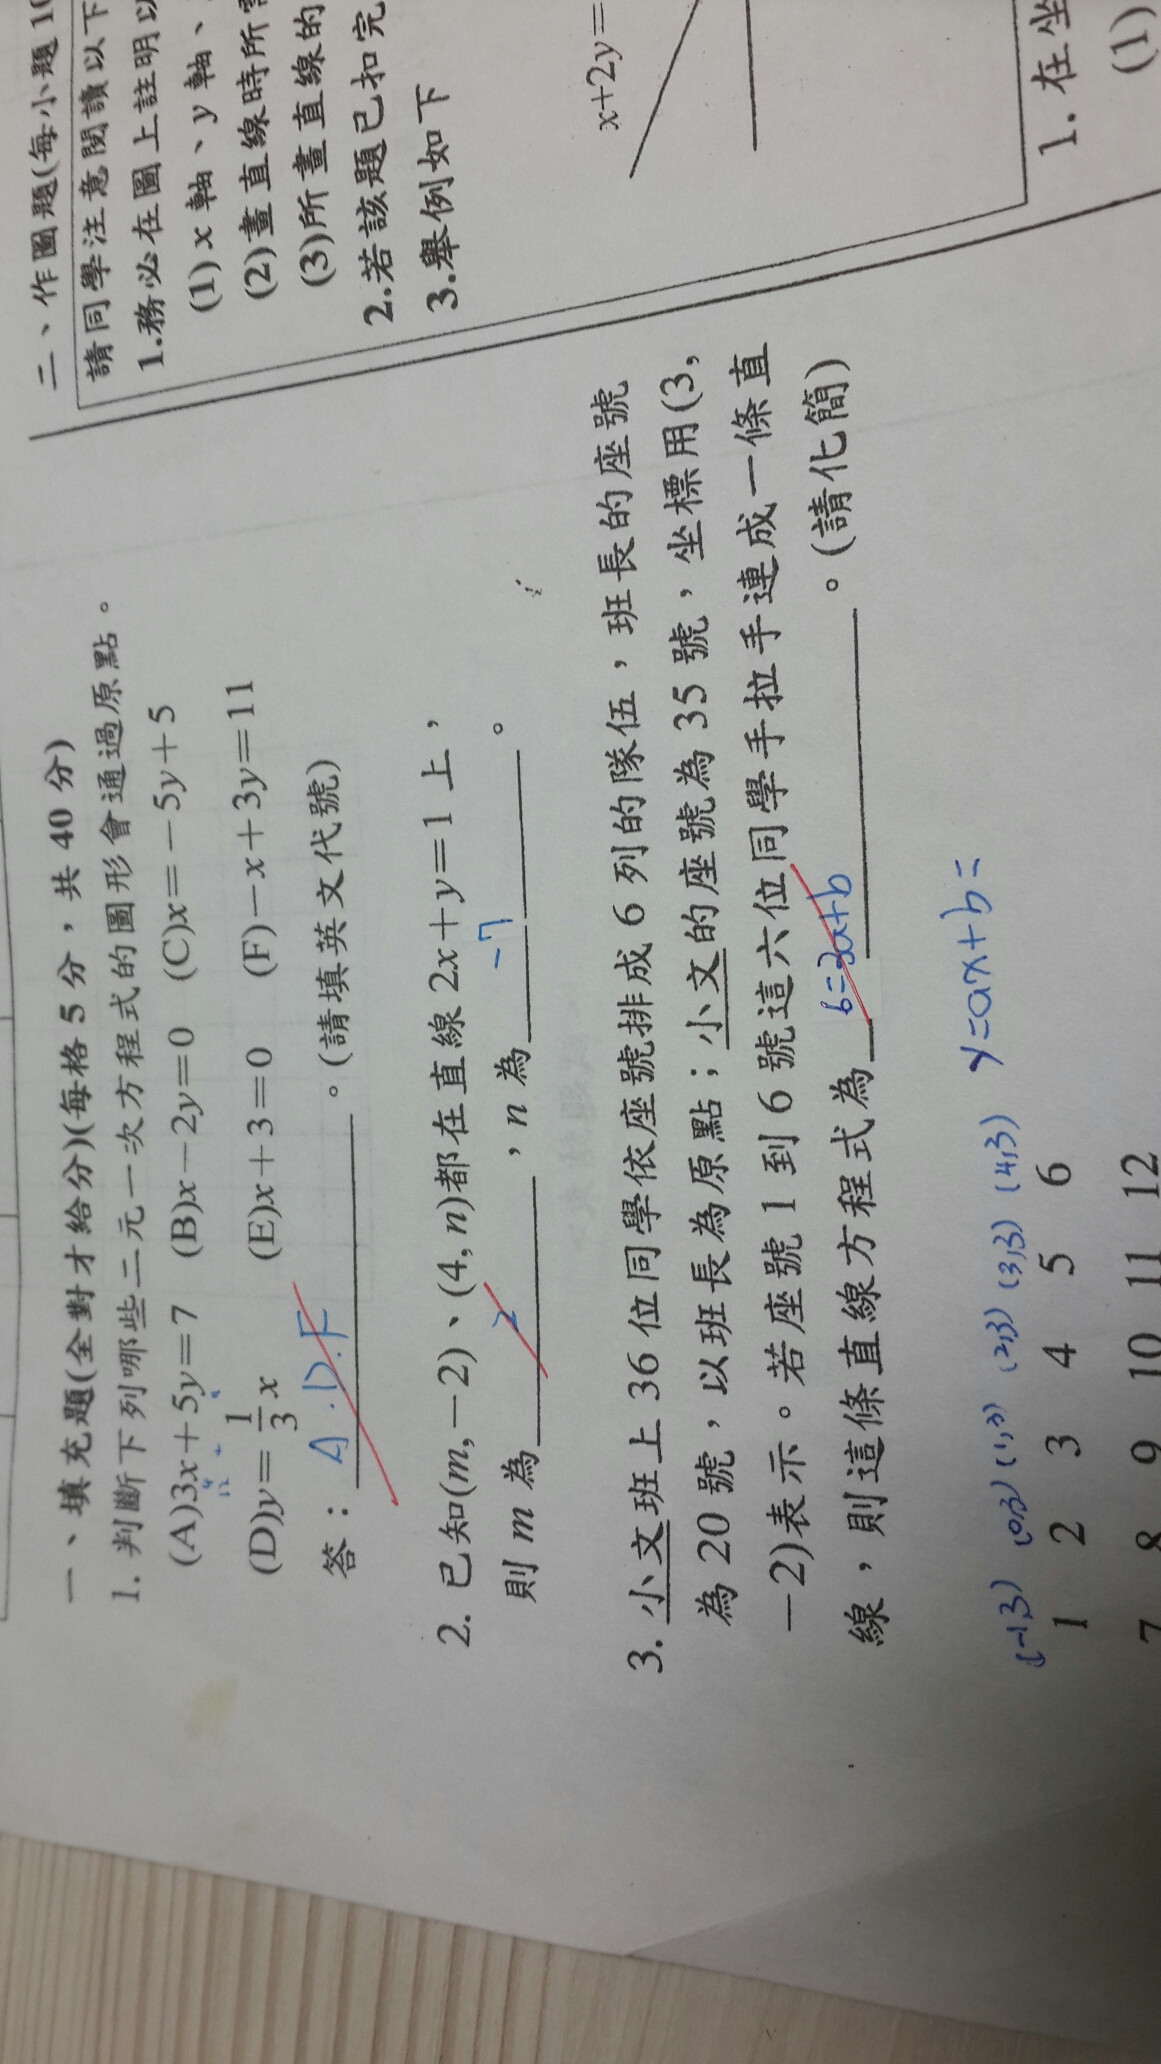 一、填充題(全對才給分)(每格 5 分，共 40 分)
1. 判斷下列哪些二元一次方程式的圖形會通過原點。
(A)3x＋5y＝7 (B)x－2y＝0 (C)x＝－5y＋5
(D)y＝1/3 x (E)x＋3＝0 (F)－x＋3y＝11
答：A.D.F。(請填英文代號)
2. 已知(m,－2)、(4, n)都在直線 2x＋y＝1 上，
則 m 為 2，n 為 -7。
3. 小文班上 36 位同學依座號排成 6 列的隊伍，班長的座號
為 20 號，以班長為原點；小文的座號為 35 號，坐標用(3,
－2)表示。若座號 1 到 6 號這六位同學手拉手連成一條直
線，則這條直線方程式為 b=3a+b。(請化簡)
(-1,3) (0,3) (1,3) (2,3) (3,3) (4,3) y=ax+b=
1 2 3 4 5 6
7 8 9 10 11 12
二、作圖題(每小題 1
請同學注意閱讀以下
1.務必在圖上註明以
(1) x 軸、y 軸、
(2)畫直線時所
(3)所畫直線的
2.若該題已扣完
3.舉例如下
x+2y=
1. 在坐
(1)